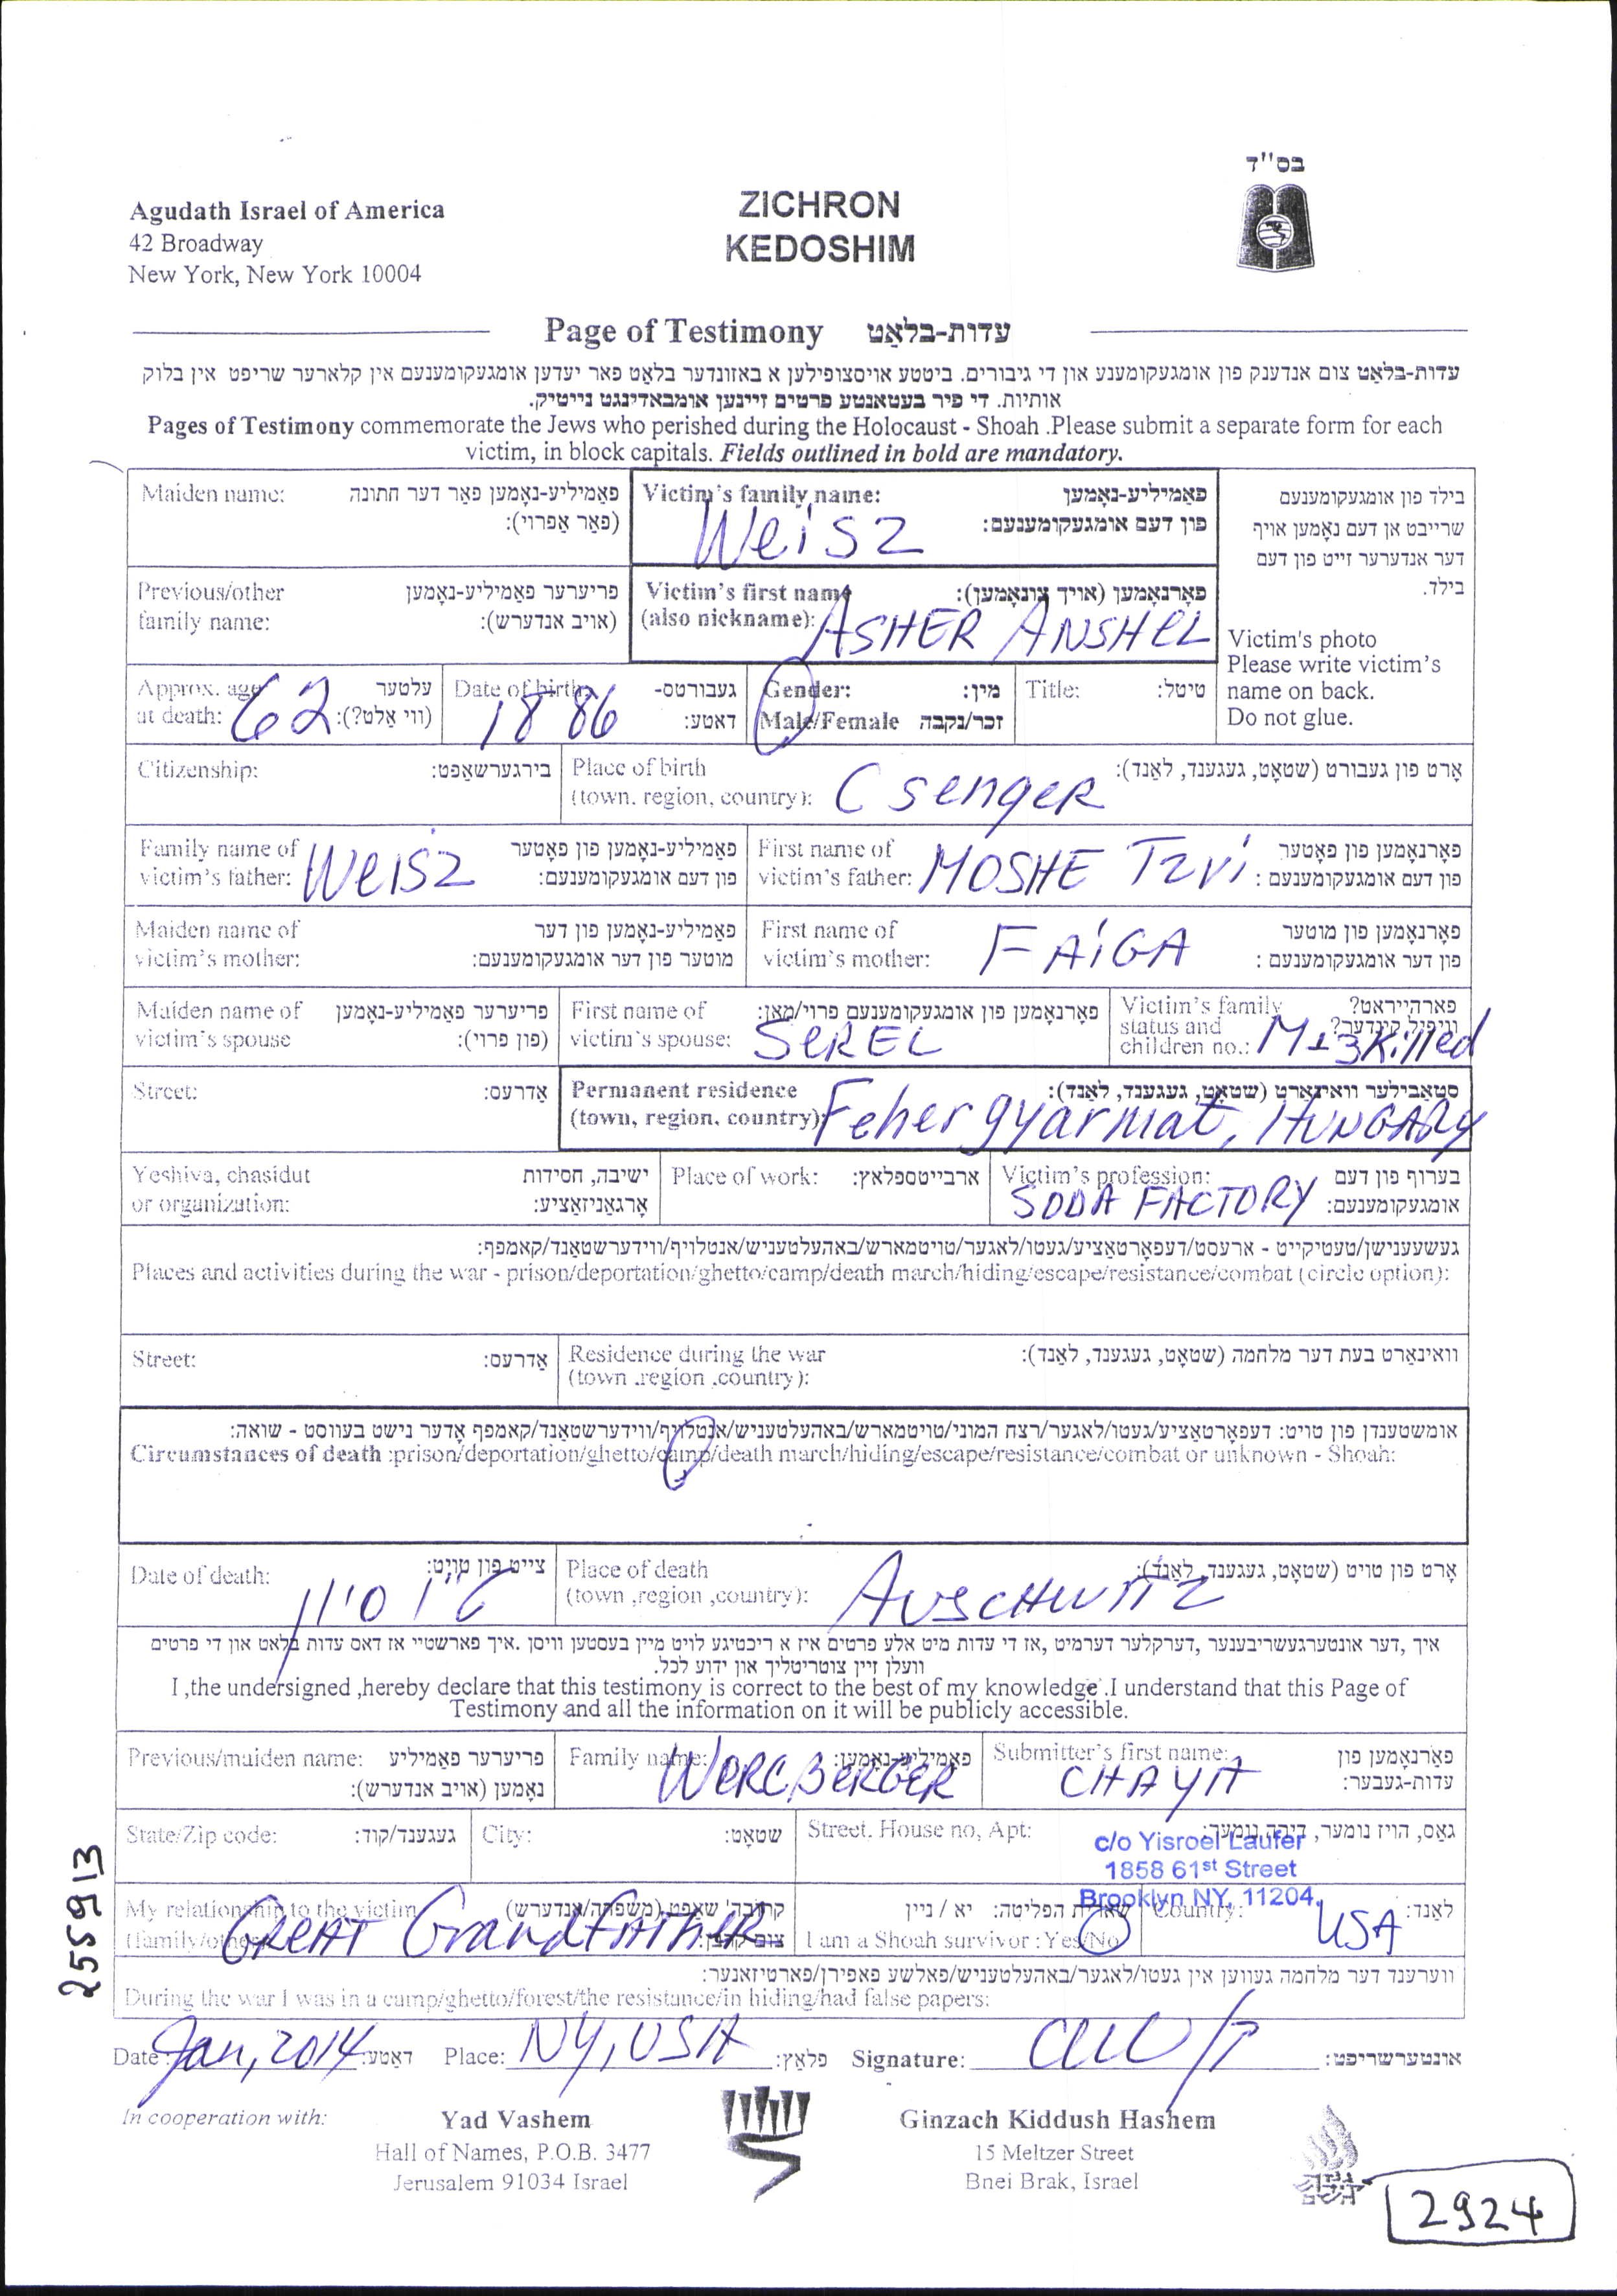 בס"ד
Agudath Israel of America
42 Broadway
New York, New York 10004
ZICHRON
KEDOSHIM
Page of Testimony עדות-בלאַט
עדות-בלאַט צום אנדענק פון אומגעקומענע און די גיבורים. ביטטע אויסצופילען א באזונדער בלאַט פאר יעדען אומגעקומענעם אין קלארער שריפט אין בלוק
אותיות. די פיר בעטאנטע פרטים זיינען אומבאדינגט נייטיק.
Pages of Testimony commemorate the Jews who perished during the Holocaust - Shoah .Please submit a separate form for each
victim, in block capitals. Fields outlined in bold are mandatory.
Maiden name: פאַמיליע-נאָמען פאַר דער חתונה
(פאַר אַפרוי):
Victim's family name: פאַמיליע-נאָמען
פון דעם אומגעקומענעם:
Weisz
בילד פון אומגעקומענעם
שרייבט אן דעם נאָמען אויף
דער אנדערער זייט פון דעם
בילד.
Victim's photo
Please write victim's
name on back.
Do not glue.
Previous/other פריערער פאַמיליע-נאָמען
family name: (אויב אנדערש):
Victim's first name פאָרנאָמען (אויך צונאָמען):
(also nickname): ASHER ANSHEL
Approx. age עלטער
at death: 62 (ווי אַלט?):
Date of birth: געבורטס-
1886 דאטע:
Gender: מין:
Male/Female זכר/נקבה
Title: טיטל:
Citizenship: בירגערשאַפט:
Place of birth אָרט פון געבורט (שטאָט, געגענד, לאַנד):
(town. region, country): Csenger
Family name of פאַמיליע-נאָמען פון פאָטער
victim's father: Weisz פון דעם אומגעקומענעם:
First name of פאָרנאָמען פון פאָטער
victim's father: MOSHE Tzvi פון דעם אומגעקומענעם :
Maiden name of פאַמיליע-נאָמען פון דער
victim's mother: מוטער פון דער אומגעקומענעם:
First name of פאָרנאָמען פון מוטער
victim's mother: FAiGA פון דער אומגעקומענעם :
Maiden name of פריערער פאַמיליע-נאָמען
victim's spouse (פון פרוי):
First name of פאָרנאָמען פון אומגעקומענעם פרוי/מאן:
victim's spouse: SEREL
Victim's family פארהייראט?
status and וויפיל קינדער?
children no.: M 3 Killed
Street: אַדרעס:
Permanent residence סטאַבילער וואינאָרט (שטאָט, געגענד, לאַנד):
(town, region. country): Fehergyarmat, HUNGARY
Yeshiva, chasidut ישיבה, חסידות
or organization: אָרגאַניזאַציע:
Place of work: ארבייטספלאַץ:
Victim's profession: בערוף פון דעם
SODA FACTORY אומגעקומענעם:
געשעענישן/טעטיקייט - ארעסט/דעפּאָרטאַציע/געטו/לאגער/טויטמארש/באהעלטעניש/אנטלויף/ווידערשטאַנד/קאמפף:
Places and activities during the war - prison/deportation/ghetto/camp/death march/hiding/escape/resistance/combat (circle option):
Street: אַדרעס:
Residence during the war וואינאָרט בעת דער מלחמה (שטאָט, געגענד, לאַנד):
(town .region .country):
אומשטענדן פון טויט: דעפּאָרטאַציע/געטו/לאגער/רצח המוני/טויטמארש/באהעלטעניש/אנטלויף/ווידערשטאַנד/קאמפף אָדער נישט בעווסט - שואה:
Circumstances of death :prison/deportation/ghetto/camp/death march/hiding/escape/resistance/combat or unknown - Shoah:
Date of death: צייט פון טויט:
סיון
Place of death אָרט פון טויט (שטאָט, געגענד, לאַנד):
(town ,region ,country): AUSCHWITZ
איך ,דער אונטערגעשריבענער ,דערקלער דערמיט ,אז די עדות מיט אלע פרטים איז א ריכטיגע לויט מיין בעסטען וויסן .איך פארשטיי אז דאס עדות בלאט און די פרטים
וועלן זיין צוטריטליך און ידוע לכל.
I ,the undersigned ,hereby declare that this testimony is correct to the best of my knowledge .I understand that this Page of
Testimony and all the information on it will be publicly accessible.
Previous/maiden name: פריערער פאַמיליע
נאָמען (אויב אנדערש):
Family name: פאַמיליע-נאָמען:
WERCBERGER
Submitter's first name: פאָרנאָמען פון
CHAYA עדות-געבער:
State/Zip code: געגענד/קוד:
City: שטאָט:
Street. House no, Apt: גאַס, הויז נומער, דירה נומער:
c/o Yisroel Laufer
1858 61st Street
Brooklyn NY, 11204
My relationship to the victim
(family/other) GREAT GrandFATHER
שארית הפליטה: יא / ניין
I am a Shoah survivor : Yes/No
Country: USA לאַנד:
ווערענד דער מלחמה געווען אין געטו/לאגער/באהעלטעניש/פאלשע פאפירן/פארטיזאנער:
During the war I was in a camp/ghetto/forest/the resistance/in hiding/had false papers:
Date: Jan, 2014 דאַטע: Place: NY, USA פלאַץ: Signature: אונטערשריפט:
In cooperation with:
Yad Vashem
Hall of Names, P.O.B. 3477
Jerusalem 91034 Israel
Ginzach Kiddush Hashem
15 Meltzer Street
Bnei Brak, Israel
2924
255913